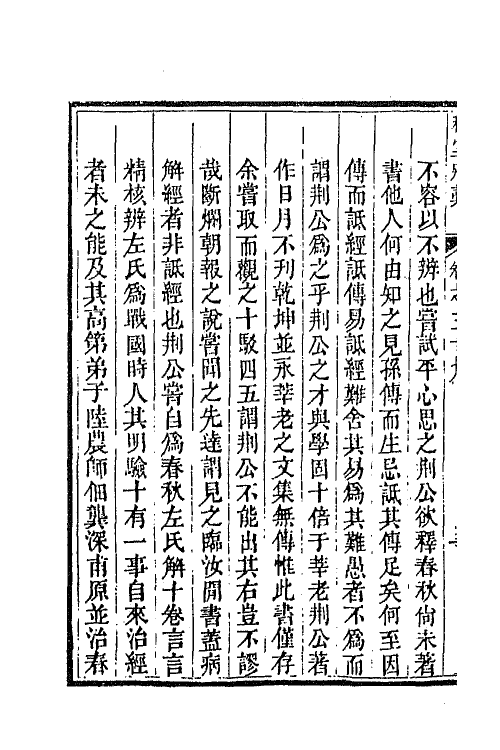 不容以不辨也嘗試平心思之荆公欲釋春秋尙未著
書他人何由知之見孫傳而生忌詆其傳足矣何至因
傳而詆經詆傳易詆經難舍其易爲其難愚者不爲而
謂荆公爲之乎荆公之才與學固十倍于莘老荆公著
作日月不刊乾坤並永莘老之文集無傳惟此書僅存
余嘗取而觀之十駁四五謂荆公不能出其右豈不謬
哉斷爛朝報之說嘗聞之先達謂見之臨汝閒書蓋病
解經者非詆經也荆公嘗自爲春秋左氏解十卷言言
精核辨左氏爲戰國時人其明驗十有一事自來治經
者未之能及其高第弟子陸農師佃龔深甫原並治春